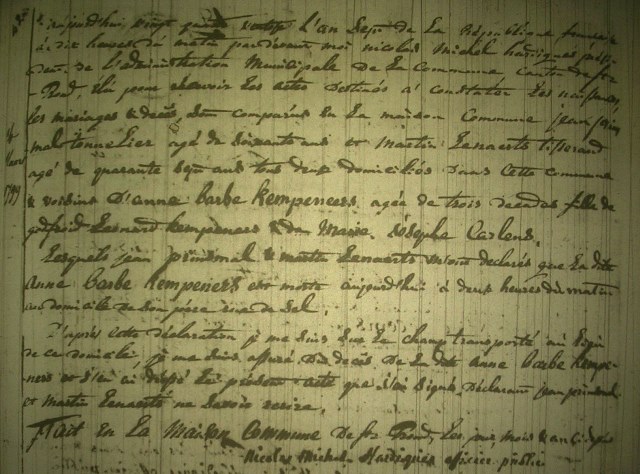 aujourd'hui vingt quatre ventose l'an Sept de La République française
à dix heures du matin pardevant moi nicolas Michel hardiques prési-
dent de l'administration Municipale de La Commune Canton de St
Trond, Elu pour recevoir Les actes Destinés à constater Les naissances,
les mariages & décès, sont comparus En La maison Commune jean prin
mal tonnelier agé de soixante ans et Martin Lenaerts tisserand
agé de quarante sept ans tous deux domiciliés dans cette commune
4
mars
1799
& voisins D'anne Barbe Kempeneers, agée de trois decades fille de
godfroid Leonard Kempeneers & de Marie Josephe Carlens,
Lesquels jean prinmal & martin Lenaerts m'ont declarés que La dite
Anne Barbe Kempeneers est morte aujourd'hui à deux heures du matin
au domicile de son pere rue de Sel.
D'après cette déclaration je me suis sur Le champ transporté au Lieu
de ce domicile, je me suis assuré Du decès De La dite Anne Barbe Kempe-
neers et j'en ai dressé Le présent acte que j'ai signé, Déclarant jean prinmal
et Martin Lenaerts ne savoir ecrire.
Fait En La Maison Commune De St Trond, Les jour, mois & an
Nicolas Michel Hardiques officier public